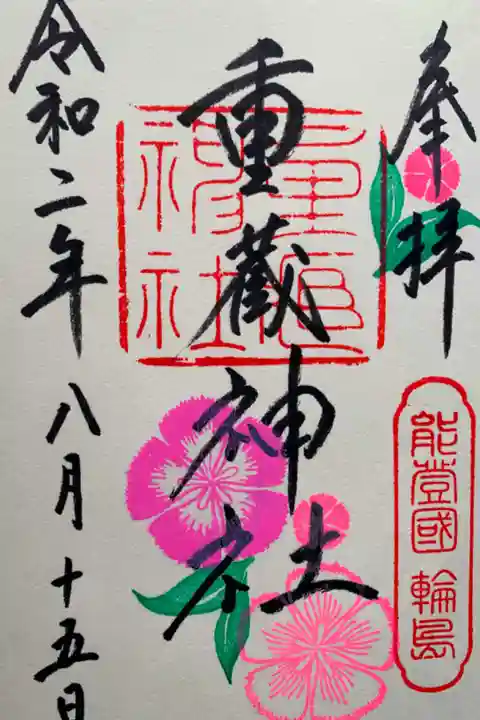 奉拝
能登國 輪島
重蔵神社
令和二年八月十五日